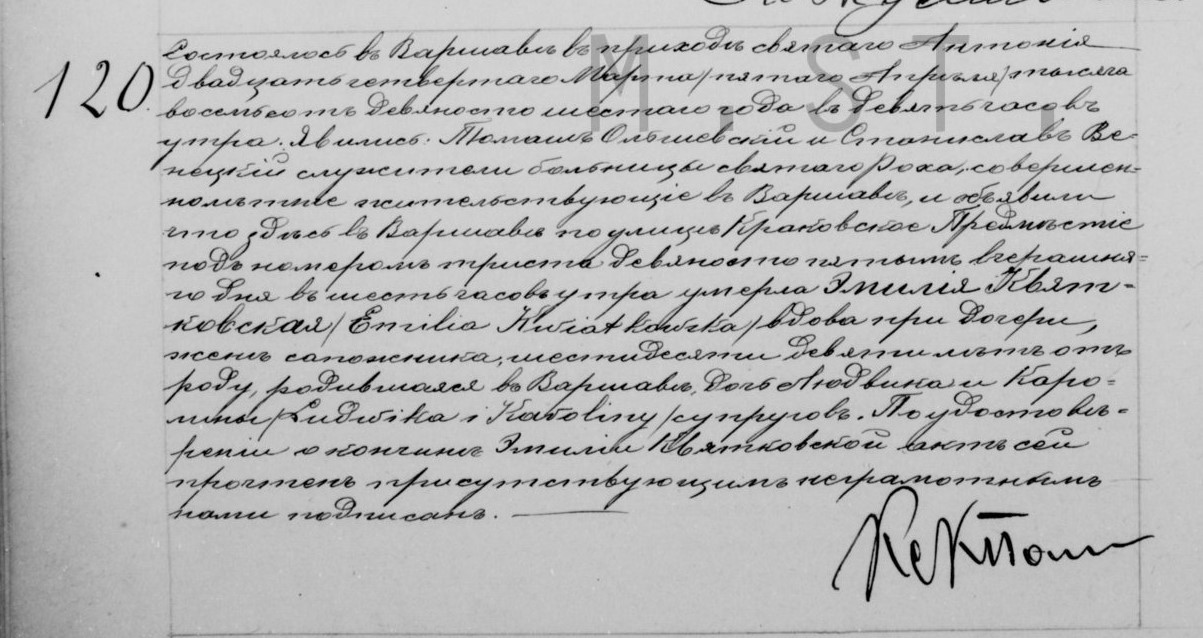 120.
Состоялось въ Варшавѣ въ приходѣ святаго Антонія
двадцать четвертаго Марта/пятаго Апрѣля/тысяча
восемьсотъ девяносто шестаго года въ девять часовъ
утра. Явились: Томашъ Ольшевскій и Станиславъ Ве-
нецкій служители больницы святаго Роха, совершен-
нолѣтніе жительствующіе въ Варшавѣ, и объявили
что здѣсь въ Варшавѣ по улицѣ Краковское Предмѣстіе
подъ номеромъ триста девяносто пятымъ вчерашня-
го дня въ шесть часовъ утра умерла Эмилія Квят-
ковская/Emilia Kwiatkowska/вдова при дочери,
женѣ сапожника, шестидесяти девяти лѣтъ отъ
роду, родившаяся въ Варшавѣ, дочь Людвика и Каро-
лины/Ludwika i Karoliny/супруговъ. По удостовѣ-
реніи о кончинѣ Эмиліи Квятковской актъ сей
прочтенъ присутствующимъ неграмотнымъ
нами подписанъ.
M. S T.